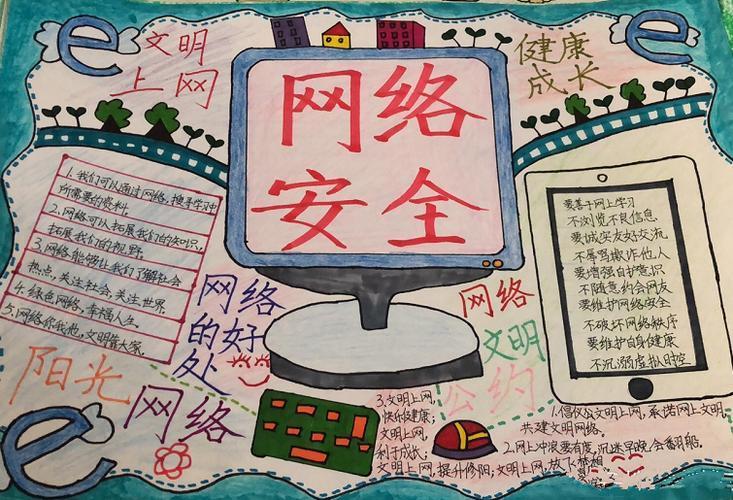 文明
上网
健康
成长
网络
安全
1.我们可以通过网络,搜寻学习中
所需要的资料。
2.网络可以拓展我们的知识,
拓展我们的视野。
3.网络能够让我们了解社会
热点,关注社会,关注世界。
4.绿色网络,幸福人生。
5.网络你我他,文明靠大家。
网络
的好
处
阳光
网络
要善于网上学习
不浏览不良信息
要诚实友好交流
不辱骂欺诈他人
要增强自护意识
不随意约会网友
要维护网络安全
不破坏网络秩序
要维护自身健康
不沉溺虚拟时空
网络
文明
公约
3.文明上网,
快乐健康;
文明上网,
利于成长;
文明上网,提升修阳;文明上网,放飞梦想
1.倡仪公文明上网,承诺网上文明,
共建文明网络。
2.网上冲浪要有度,沉迷早晚会翻船。
e
e
e